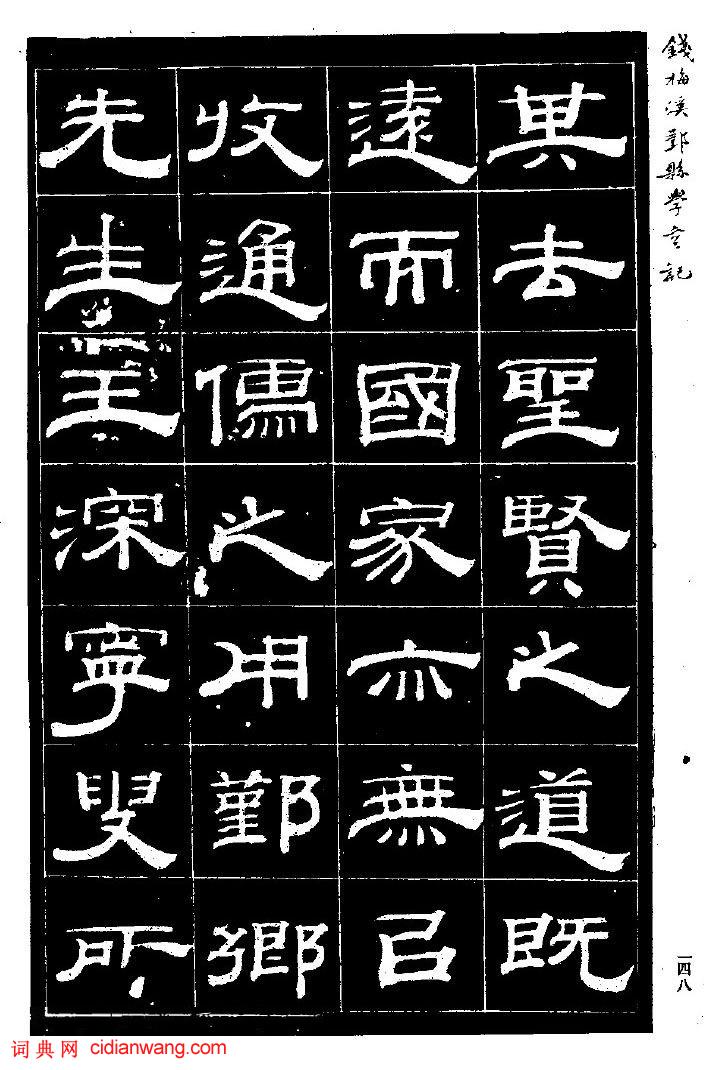 錢梅溪鄞縣學重記
其去聖賢之道既
遠而國家亦無㠯
收通儒之用鄞鄉
先生王深寧叟所
一四八
词典网 cidianwang.com